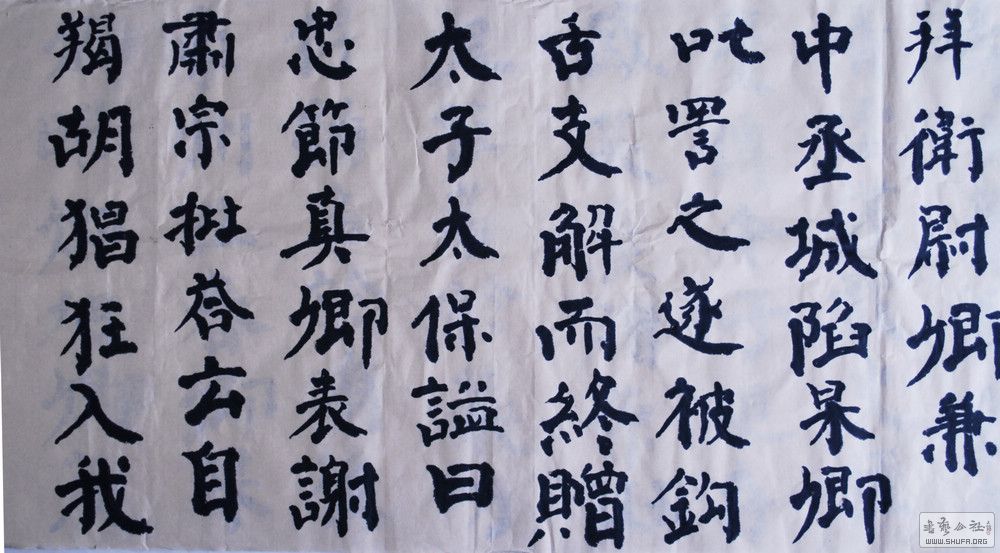 拜衛尉卿兼
中丞城陷杲卿
吡詈之遂被鈎
舌支解而終贈
太子太保謚曰
忠節真卿表謝
肅宗批荅云自
羯胡猖狂入我
書藝公社
WWW.SHUFA.ORG